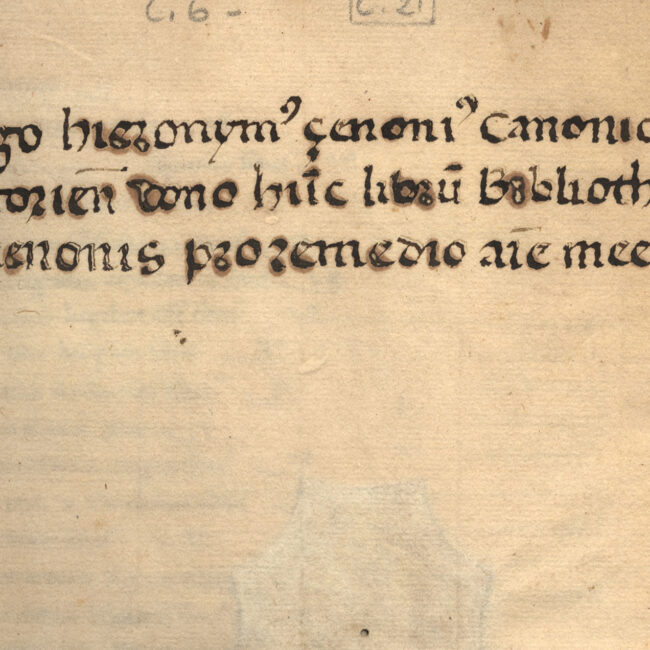 C. 6 - C. 21
go hieronym⁹ çenoni⁹ Canonic
torien̄ dono hūc librū Biblioth
enonis pro remedio aīe mee